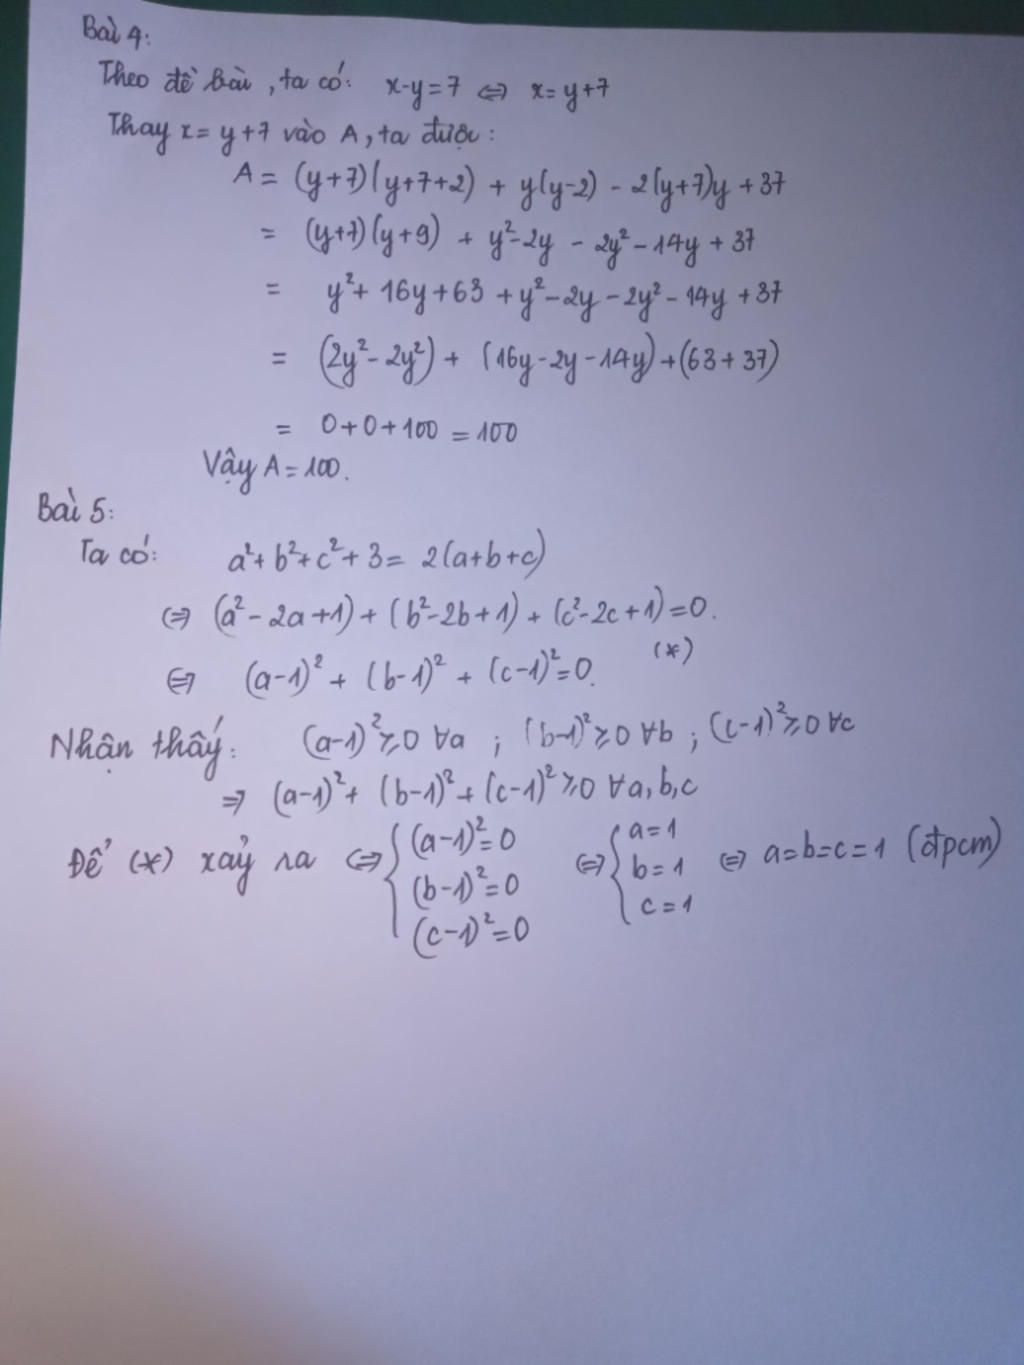 Bài 4:
Theo đề bài, ta có: x-y=7 ⇔ x= y+7
Thay x= y+7 vào A, ta được:
A = (y+7)(y+7+2) + y(y-2) - 2(y+7)y +37
= (y+7)(y+9) + y²-2y - 2y² - 14y + 37
= y²+ 16y+63 + y² - 2y - 2y² - 14y + 37
= (2y² - 2y²) + (16y - 2y - 14y) + (63 + 37)
= 0+0+100 = 100
Vậy A = 100.
Bài 5:
Ta có: a²+ b²+ c² + 3 = 2(a+b+c)
⇔ (a² - 2a+1) + (b² - 2b + 1) + (c² - 2c + 1) = 0.
⇔ (a-1)² + (b-1)² + (c-1)² = 0. (*)
Nhận thấy: (a-1)² ⩾ 0 ∀a ; (b-1)² ⩾ 0 ∀b ; (c-1)² ⩾ 0 ∀c
⇒ (a-1)² + (b-1)² + (c-1)² ⩾ 0 ∀a, b, c
Để (*) xảy ra ⇔ { (a-1)² = 0 ⇔ { a = 1 ⇔ a = b = c = 1 (đpcm)
(b-1)² = 0 b = 1
(c-1)² = 0 c = 1